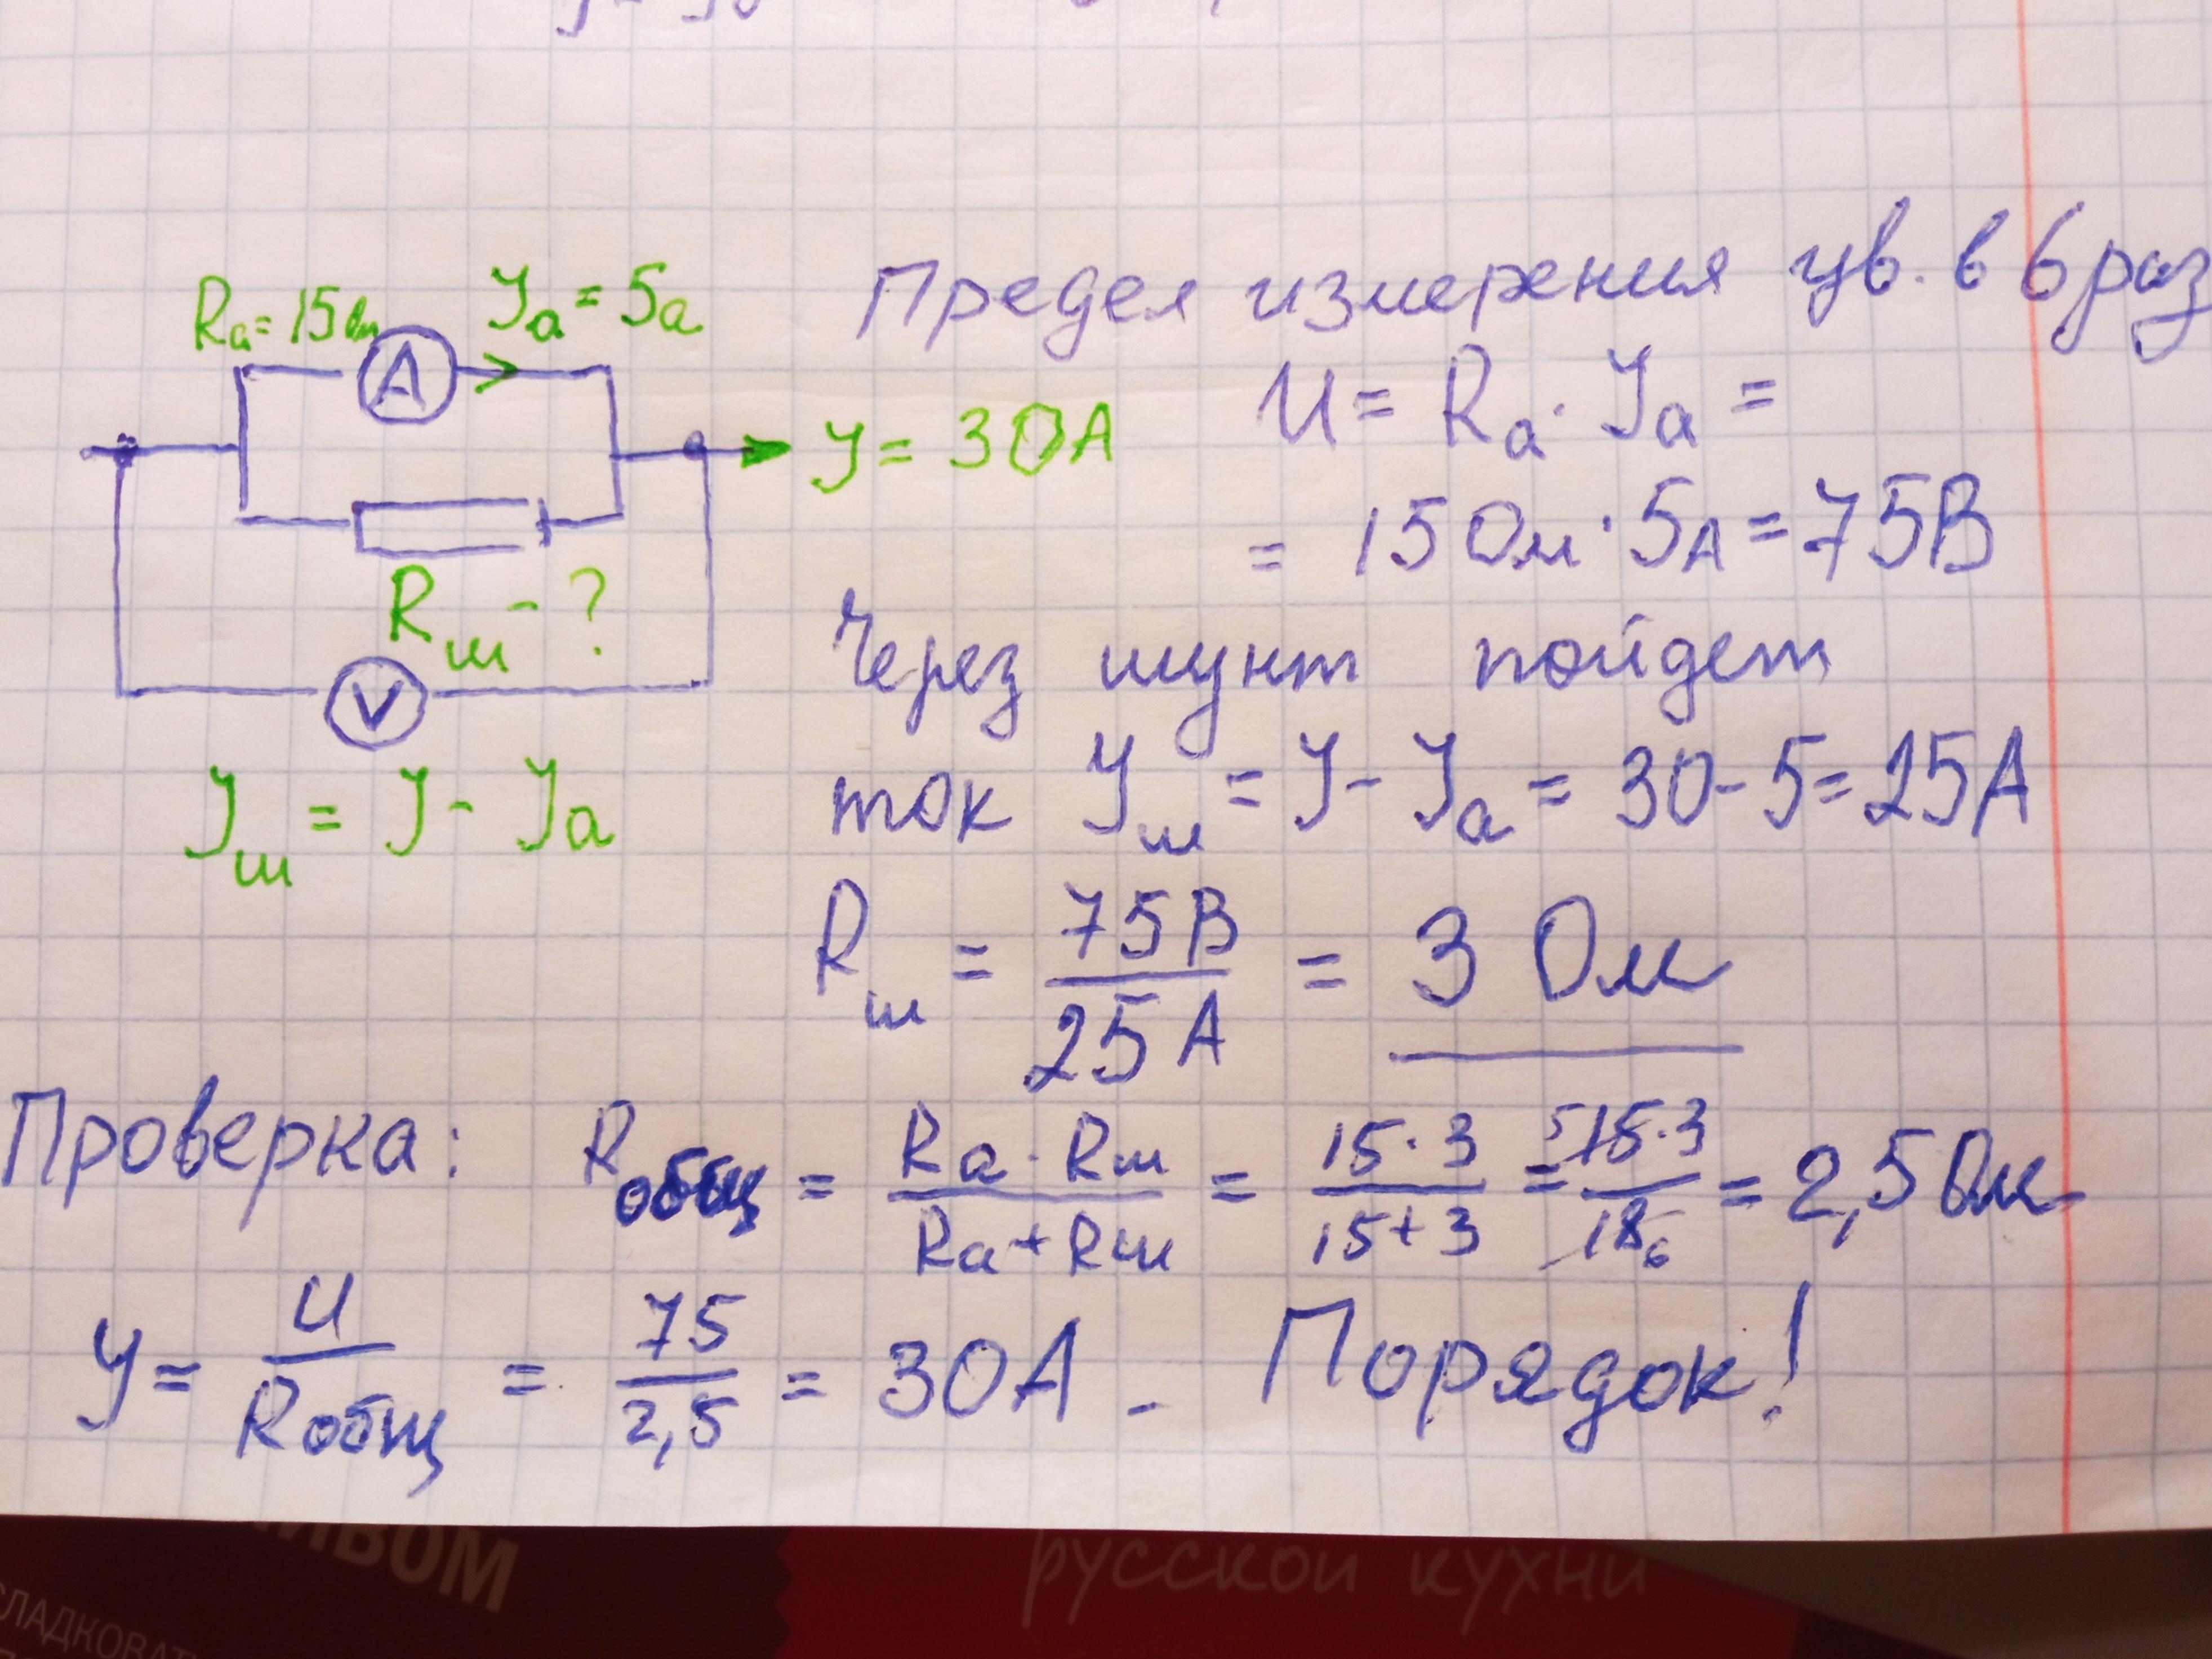 Rа = 15 Ом Jа = 5а
A
J = 30А
Rш - ?
V
Jш = J - Jа
Предел измерения ув. в 6 раз
U = Rа · Jа =
= 15 Ом · 5А = 75В
Через шунт пойдет
ток Jш = J - Jа = 30 - 5 = 25А
Rш = 75В / 25А = 3 Ом
Проверка: Rобщ = Rа · Rш / Rа + Rш = 15 · 3 / 15 + 3 = 5 15 · 3 / 18 6 = 2,5 Ом
J = U / Rобщ = 75 / 2,5 = 30А - Порядок!
русской кухни